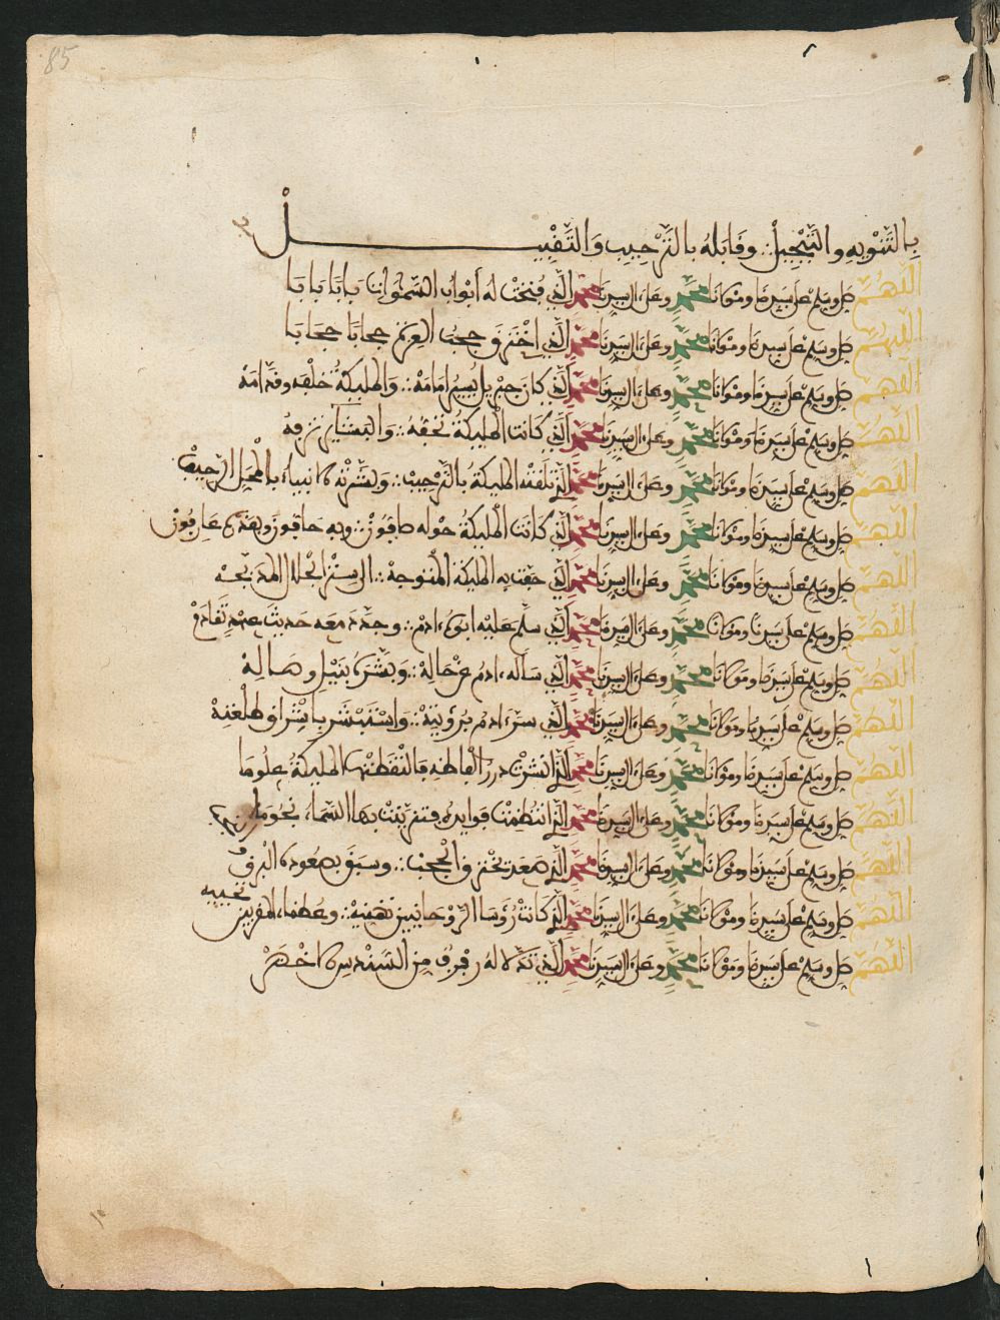 85
بِالتَّنْوِيهِ والتَّبْجِيلْ ∴ وقَابَلَهُ بالتَّرْحِيبِ وَالتَّقْبِيلْ
اللهمّ صل وسلم على سيدنا ومولانا محمد وعلى ءال سيدنا محمد الذي فُتحتْ له أبْوابُ السَّمواتِ بابًا بابَا
اللهمّ صل وسلم على سيدنا ومولانا محمد وعلى ءال سيدنا محمد الذي اخْترَق حجبُ العِزّ حجابًا حجابَا
اللهمّ صل وسلم على سيدنا ومولانا محمد وعلى ءال سيدنا محمد الذي كان جبْريلُ يسيرُ امَامَهْ ∴ والمليكةُ خلْفه وقدّامَهْ
اللهمّ صل وسلم على سيدنا ومولانا محمد وعلى ءال سيدنا محمد الذي كانتِ المليكةُ تحُفّهُ
اللهمّ صل وسلم على سيدنا ومولانا محمد وعلى ءال سيدنا محمد الذي تلقّتْه المليكةُ بالتّرْحِيبْ ∴ وبشّرتْه الانبياء بالمحَلّ الرّحِيبْ
اللهمّ صل وسلم على سيدنا ومولانا محمد وعلى ءال سيدنا محمد الذي كانت المليكةُ حوْله صافّونْ ∴ وبه حافّون وبقدره عارفُونْ
اللهمّ صل وسلم على سيدنا ومولانا محمد وعلى ءال سيدنا محمد الذي حفّت به المليكة المتوجهْ ∴ الى
اللهمّ صل وسلم على سيدنا ومولانا محمد وعلى ءال سيدنا محمد الذي سلّم عليْه ابوهُ ءادمْ ∴ وجدّد معه حديثَ عهْدٍ تقادمْ
اللهمّ صل وسلم على سيدنا ومولانا محمد وعلى ءال سيدنا محمد الذي سأله ءادمُ عن حالِهْ ∴ وبشّرهُ بنيْل وصالِهْ
اللهمّ صل وسلم على سيدنا ومولانا محمد وعلى ءال سيدنا محمد الذي سُرّ ءادم برُؤيتِهْ ∴ واسْتبْشر بإشْراق طلْعتِهْ
اللهمّ صل وسلم على سيدنا ومولانا محمد وعلى ءال سيدنا محمد الذي انتثرتْ درر ألفاظه فالتقطتْها المليكةُ علُومَا
اللهمّ صل وسلم على سيدنا ومولانا محمد وعلى ءال سيدنا محمد الذي انتظمتْ فوايدُه فتزيّنتْ بها السّماءُ نجُومَا
اللهمّ صل وسلم على سيدنا ومولانا محمد وعلى ءال سيدنا محمد الذي صعد تخترق الحجبْ ∴ وسبق بصعوده البرق
اللهمّ صل وسلم على سيدنا ومولانا محمد وعلى ءال سيدنا محمد الذي كانتْ رُؤسَا الرّوحانيين تهنيهْ ∴ وعظماء المقربين تحييه
اللهمّ صل وسلم على سيدنا ومولانا محمد وعلى ءال سيدنا محمد الذي تدلا له رفرف من السّندس الاخْضَرْ